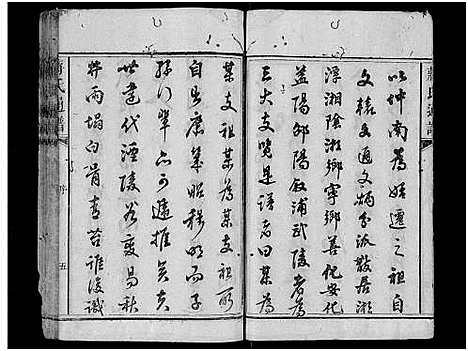 以坤南為始遷之祖自
文轅文通文炳分派散居湘
潭湘陰湘鄉寧鄉善化安化
益陽邵陽敘浦武陵者為
三大支覽是譜者曰某為
某支祖某為某支祖所
自出庶幾昭穆明而子
孫行輩亦可遞推矣夫
世遠代湮陵谷變易秋
井雨塌白骨青苔誰復識
蔣氏通譜
序
五